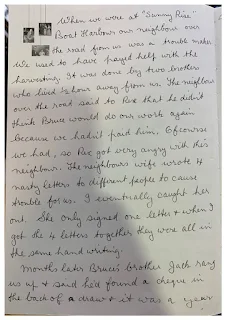 When we were at "Sunny Rise"
Boat Harbour our neighbour over
the road from us was a trouble maker.
We used to have payed help with the
harvesting. It was done by two brothers
who lived ½ hour away from us. The neighbour
over the road said to Rex that he didn't
think Bruce would do our work again
because we hadn't paid him. Ofcourse
we had, so Rex got very angry with this
neighbour. The neighbours wife wrote 4
nasty letters to different people to cause
trouble for us. I eventually caught her
out. She only signed one letter & when I
got the 4 letters together they were all in
the same hand writing.
Months later Bruce's brother Jack rang
us up & said he'd found a cheque in
the back of a draw & it was a year